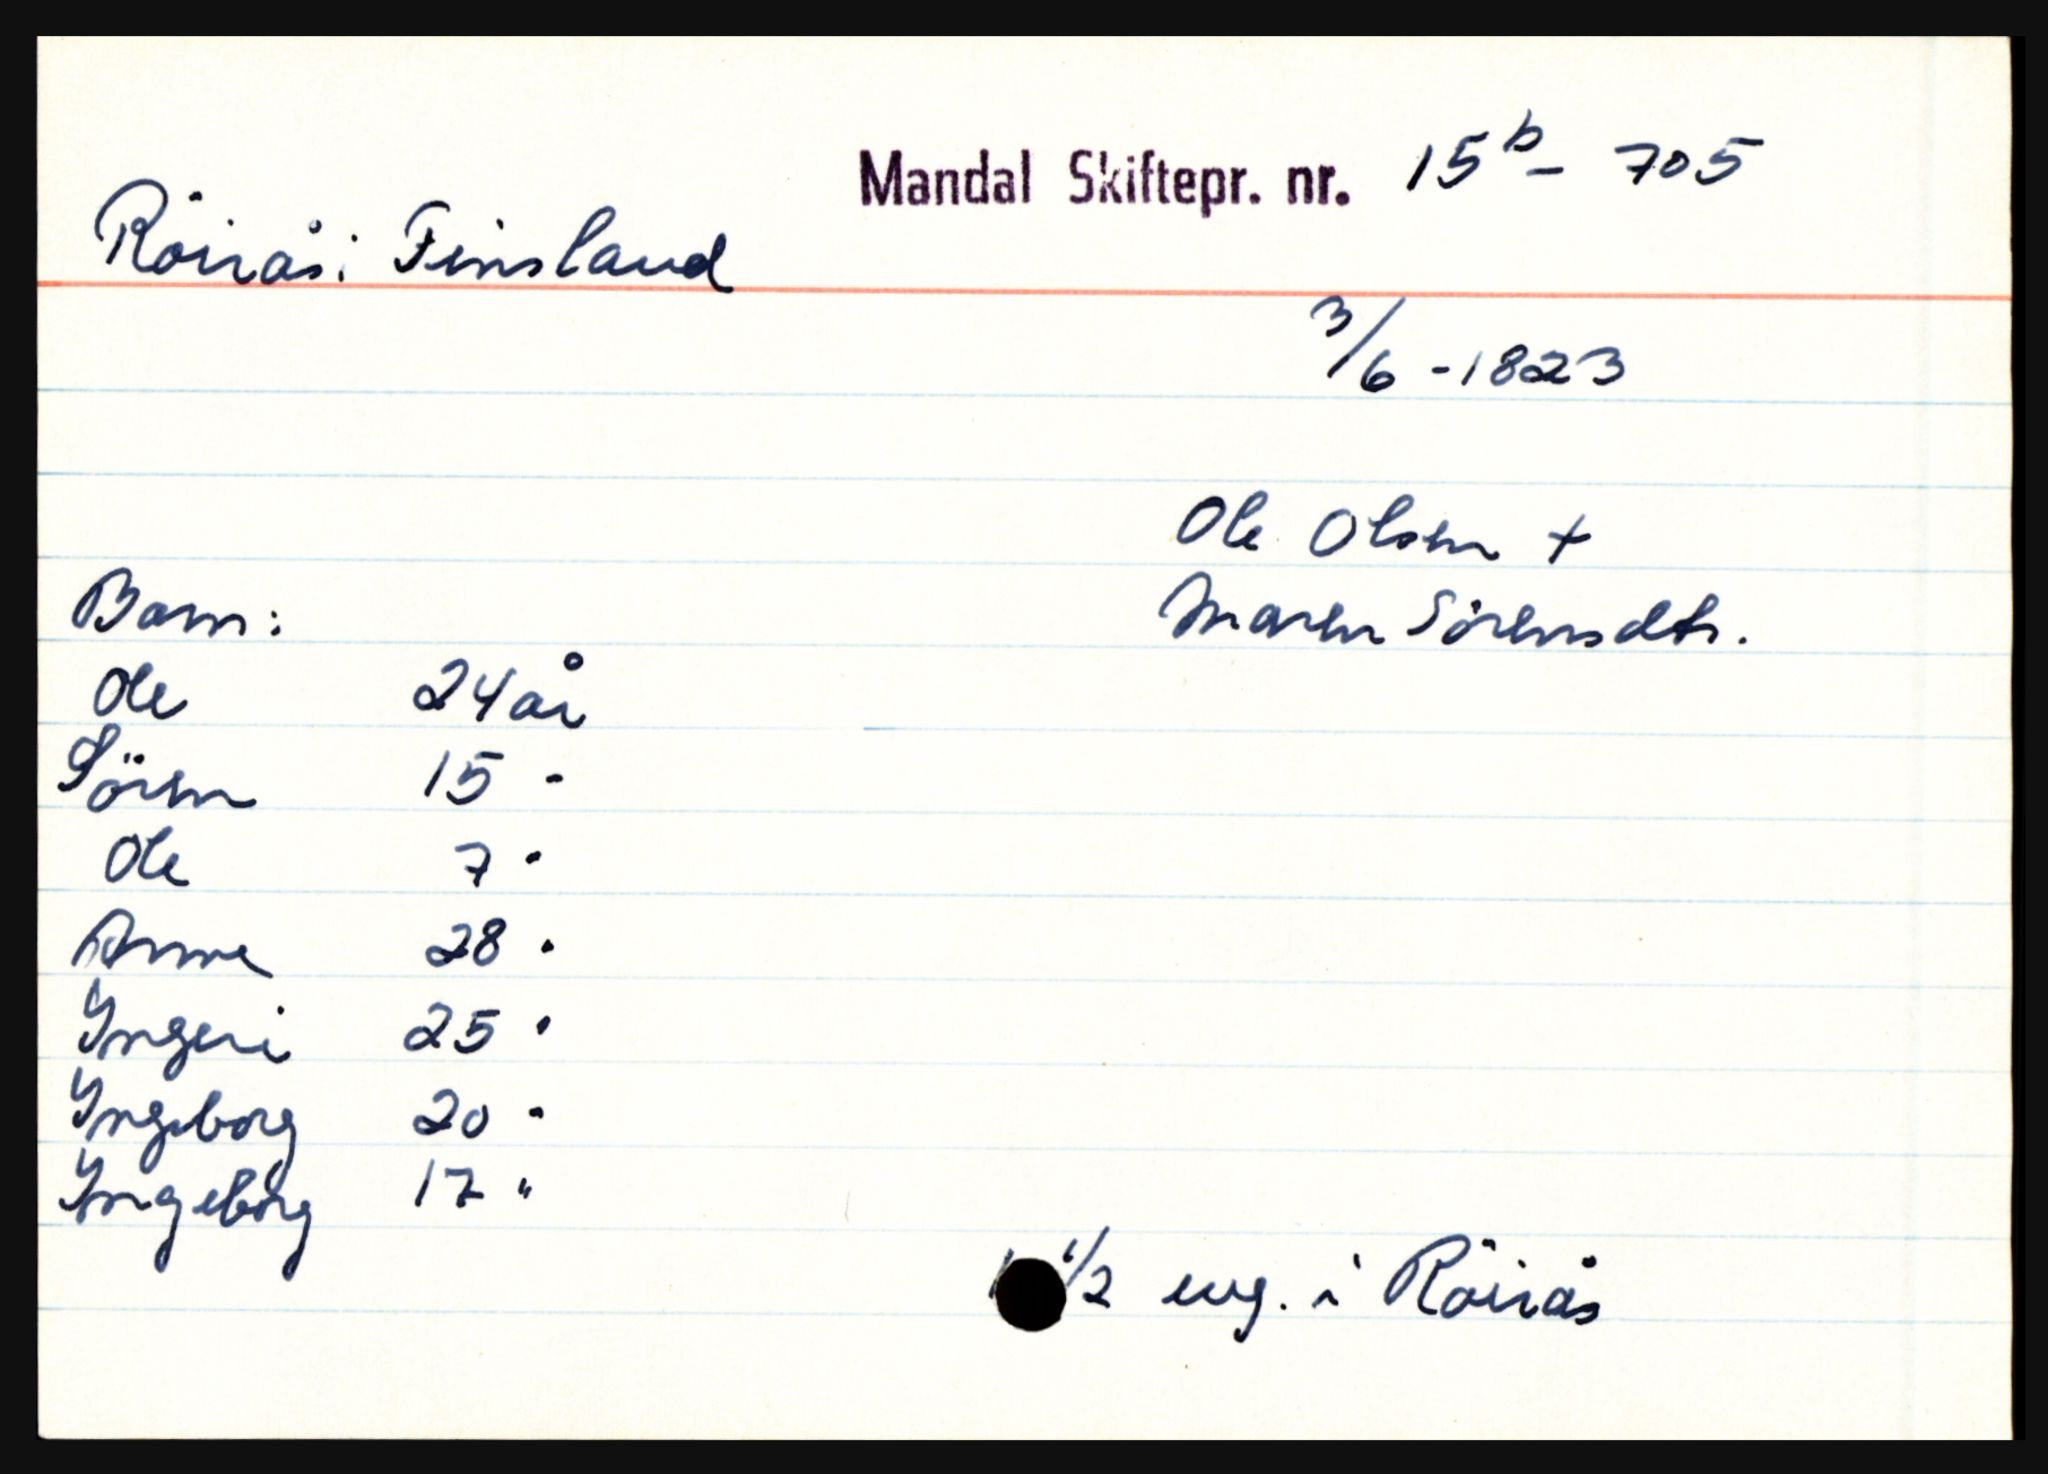 Mandal Skiftepr. nr. 15b - 705
Röirås i Finsland
3/6 - 1823
Ole Olsen +
Maren Sörensdtr.
Barn:
Ole 24 år
Sören 15 -
Ole 7 "
Anne 28 "
Ingeri 25 "
Ingeborg 20 "
Ingeborg 17 "
1/2 eng. i Röirås